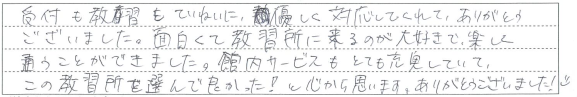 受付も教習もていねいに、優しく対応してくれて、ありがとう
ございました。面白くて教習所に来るのが大好きで、楽しく
通うことができました。館内サービスもとても充実していて、
この教習所を選んで良かった!と心から思います。ありがとうございました!